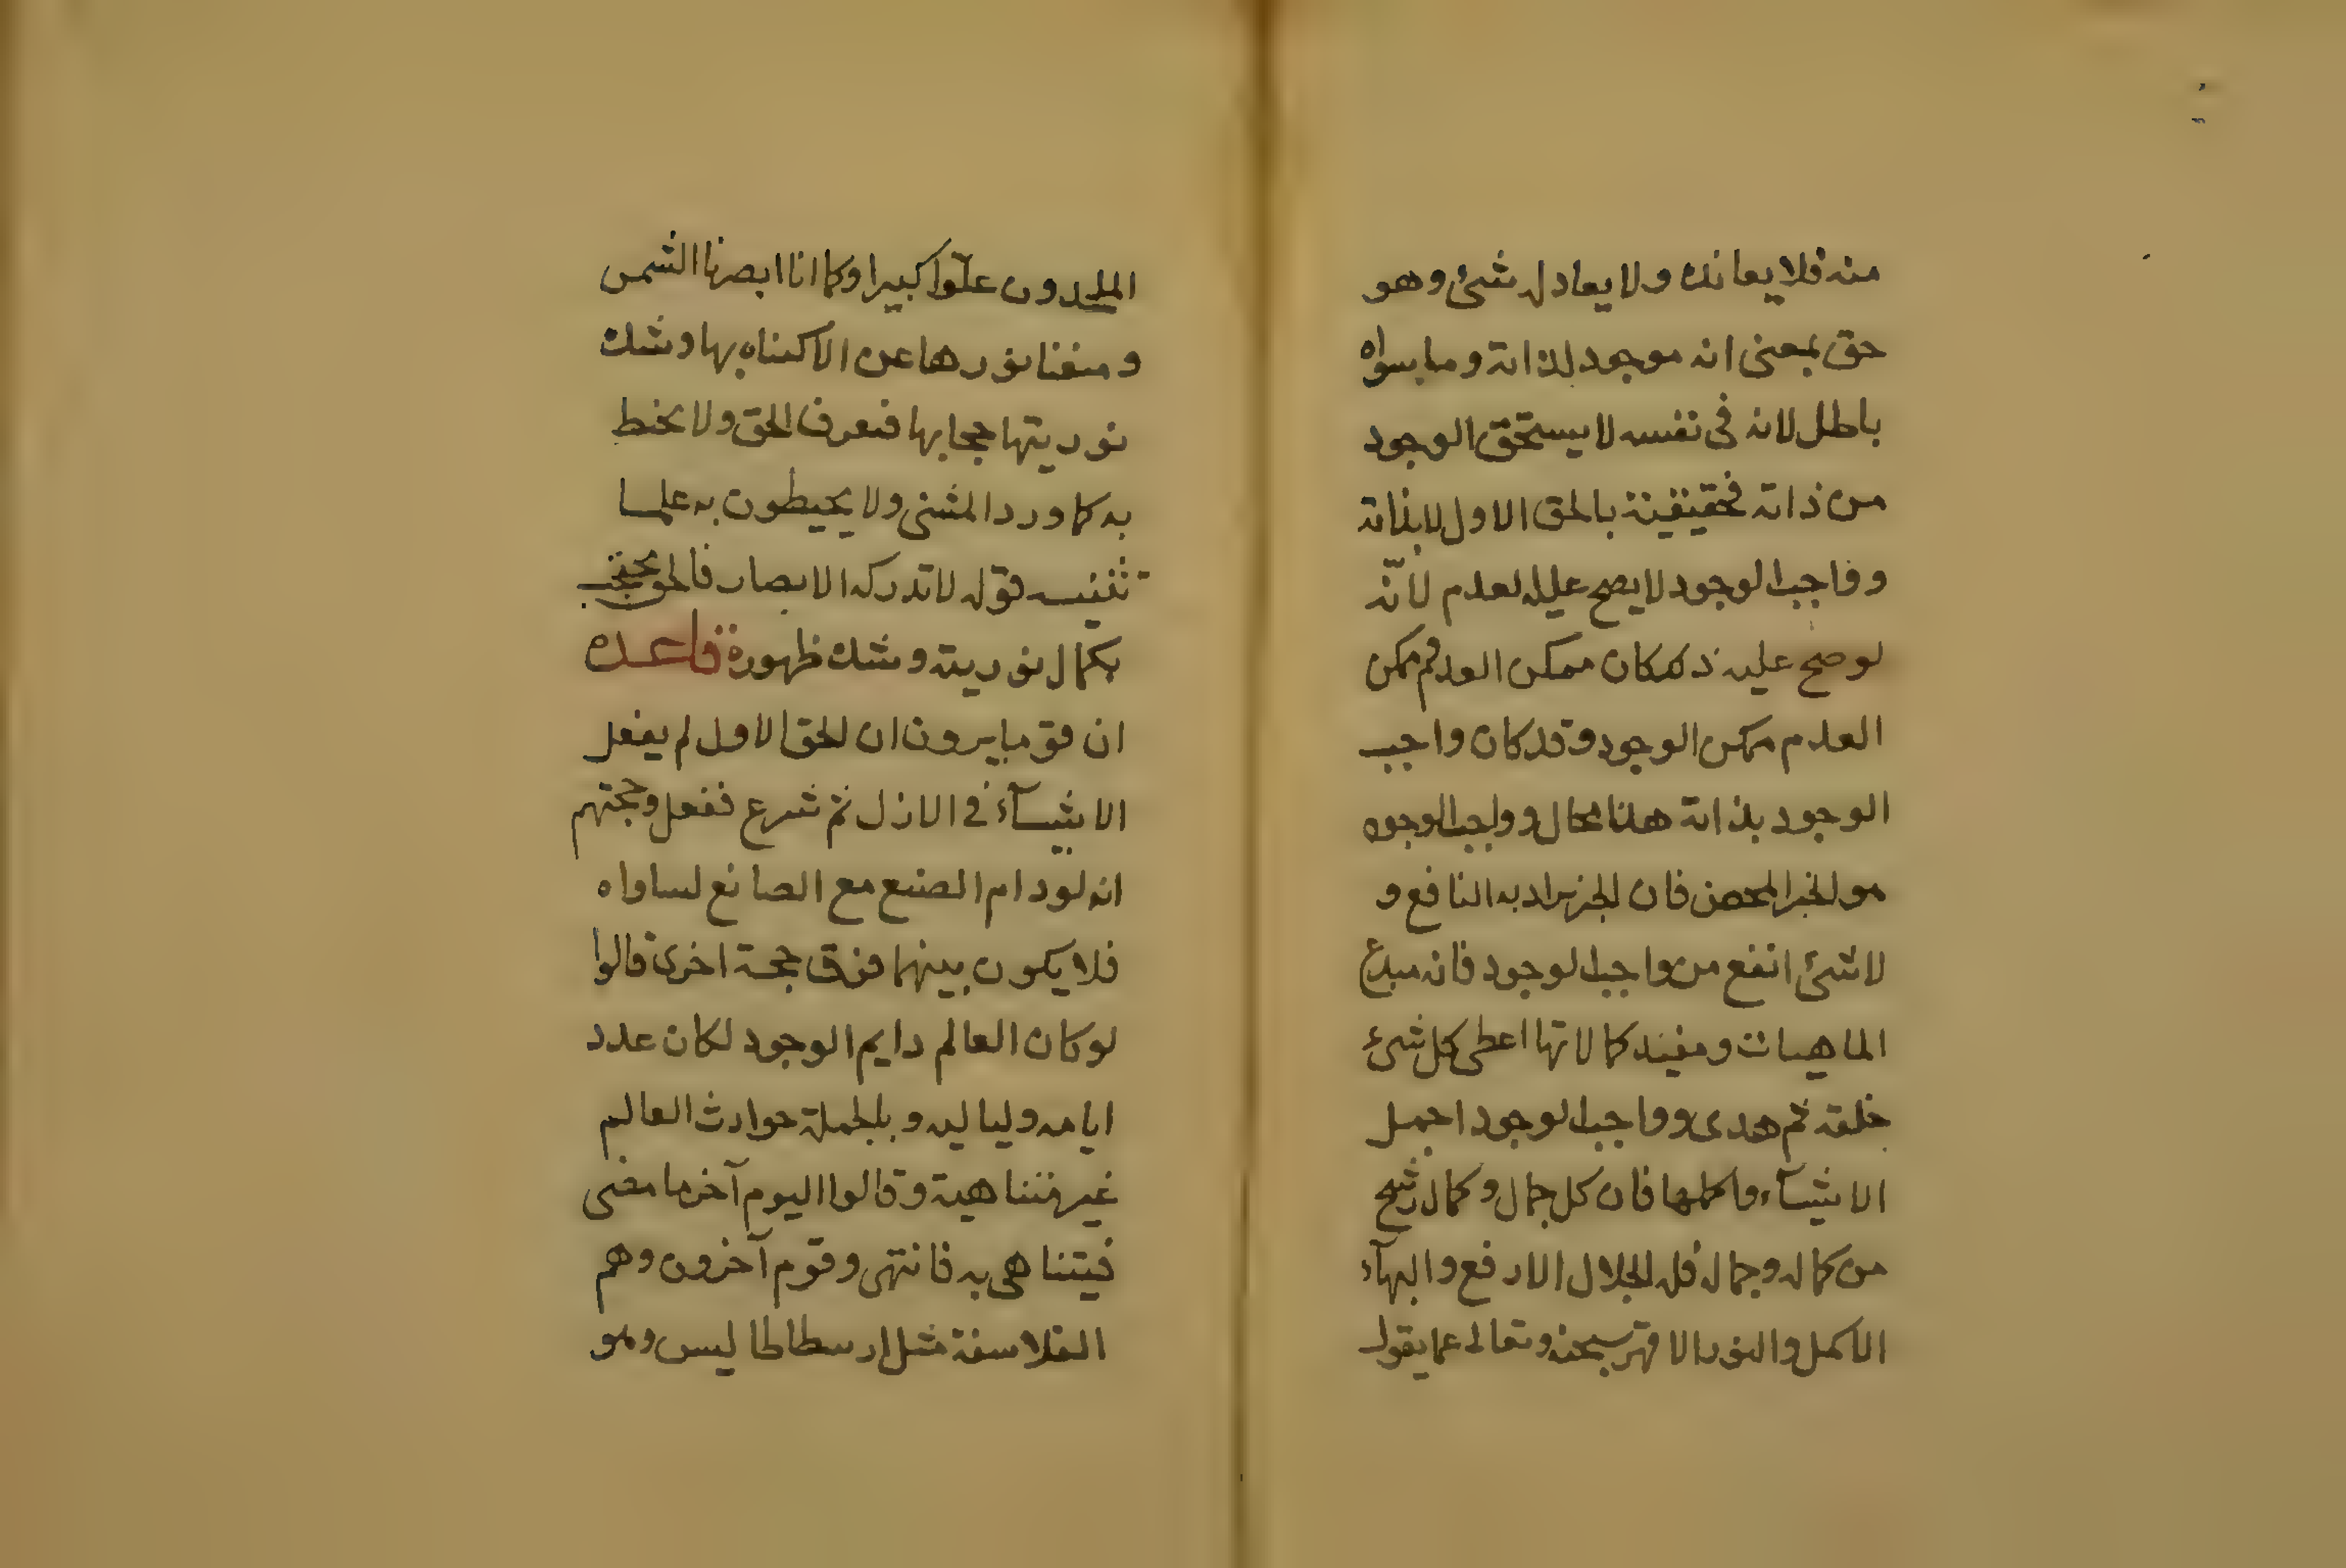 منه فلا يعانده ولا يعادله شئ وهو
حق بمعنى انه موجود لذاته وما سواه
باطل لانه فى نفسه لا يستحق الوجود
من ذاته فحقيقته بالحق الاول لا بذاته
وواجب الوجود لا يصح عليه العدم لانّه
لو صح عليه ذلك كان ممكن العدم ممكن
العدم ممكن الوجود وقد كان واجب
الوجود بذاته هذا محال وواجب الوجود
هو الخير المحض فان الخير يراد به النافع و
لا شئ انفع من واجب الوجود فانه مبدع
الماهيات ومفيد كمالاتها اعطى كل شئ
خلقه ثم هدى وواجب الوجود اجمل
الاشيآء واكملها فان كل جمال وكمال رشح
من كماله وجماله فله الجلال الارفع والبهآء
الاكمل والنور الاقهر سبحنه وتعالى عما يقول
الملحدون علوّا كبيرا وكما انا ابصرنا الشمس
ومنعنا نورها عن الاكتناه بها وشدة
نوريتها حجابها فنعرف الحق ولا نحيط
به كما ورد المثنى ولا يحيطون به علما
تثنيه قوله لا تدركه الابصار فالحق محتجب
بكمال نوريته وشدة ظهوره قاعدة
ان قوما يرون ان الحق الاول لم يفعل
الاشيآء فى الازل ثم شرع ففعل وحجتهم
انه لو دام الصنع مع الصانع لساواه
فلا يكون بينهما فرق حجة اخرى قالوا
لو كان العالم دايم الوجود لكان عدد
ايامه ولياليه وبالجملة حوادث العالم
غير متناهية وقالوا اليوم آخر ما مضى
فيتناهى به فانتهى وقوم آخرون وهم
الفلاسفة مثل ارسطاطاليس وهو